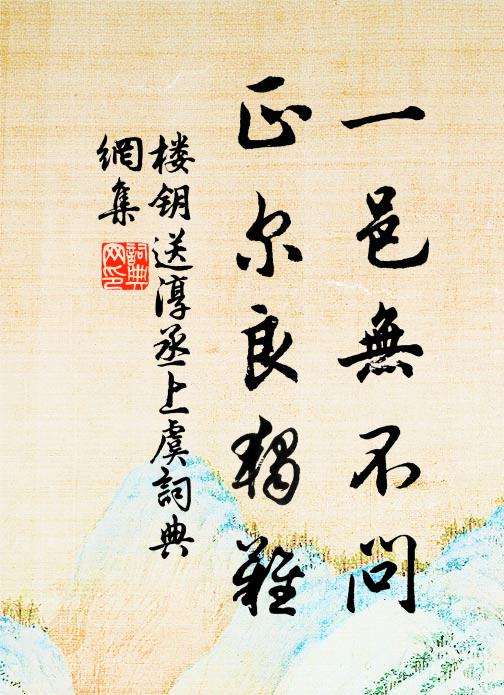 一邑無不問
正尔良独難
楼钥送淳丞上虞詞典
網集
詞典网印